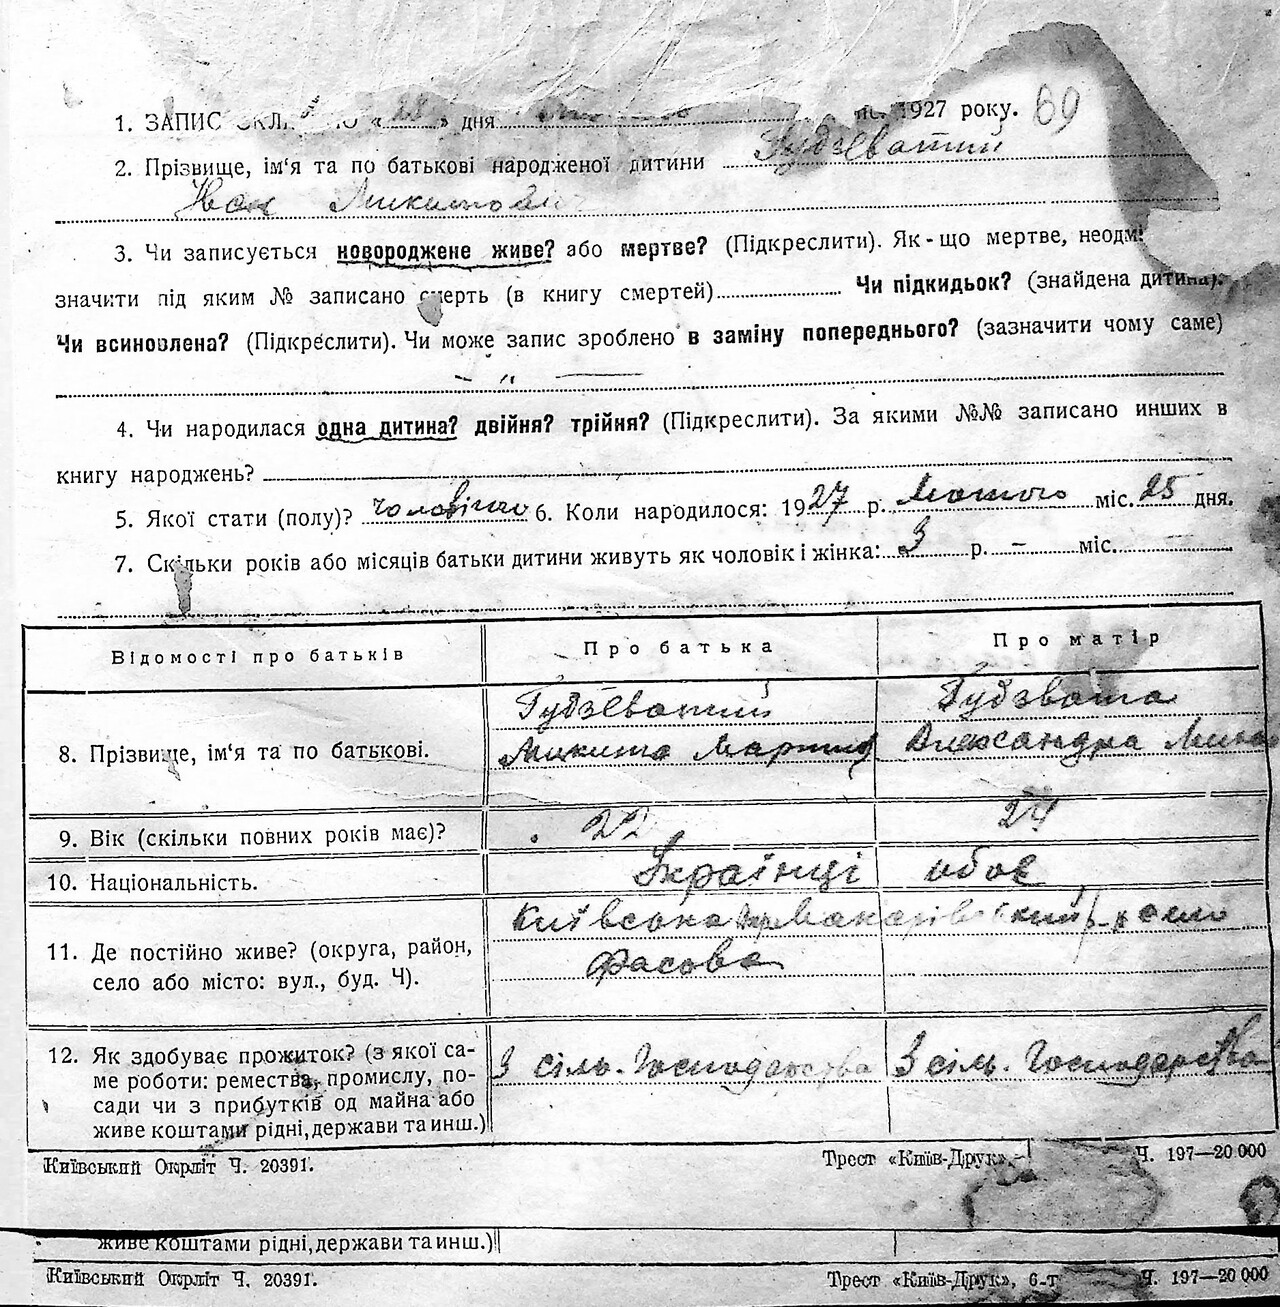 1. ЗАПИС «28» дня міс. 1927 року. 69
2. Прізвище, ім‘я та по батькові народженої дитини Гудзеватий
Іван Микитович
3. Чи записується новороджене живе? або мертве? (Підкреслити). Як-що мертве, неодм
значити під яким № записано смерть (в книгу смертей) Чи підкидьок? (знайдена дитина).
Чи всиновлена? (Підкреслити). Чи може запис зроблено в заміну попереднього? (зазначити чому саме)
— " —
4. Чи народилася одна дитина? двійня? трійня? (Підкреслити). За якими №№ записано инших в
книгу народжень?
5. Якої стати (полу)? 6. Коли народилося: 1927 р. Лютого міс. 25 дня.
7. Скільки років або місяців батьки дитини живуть як чоловік і жінка: 3 р. — міс. —
Відомості про батьків Про батька Про матір
8. Прізвище, ім‘я та по батькові. Гудзеватий Гудзвата
Микита Александра
9. Вік (скільки повних років має)? 22 24
10. Національність. Українці обоє
11. Де постійно живе? (округа, район, Київська Макарівський р-н село
село або місто: вул., буд. Ч). Фасова
12. Як здобуває прожиток? (з якої са-
ме роботи: ремества, промислу, по- З сіль. Господарства З сіль. Господарства
сади чи з прибутків од майна або
живе коштами рідні, держави та инш.)
Київський Окрліт Ч. 20391. Трест «Київ-Друк», Ч. 197—20 000
живе коштами рідні, держави та инш.)
Київський Окрліт Ч. 20391. Трест «Київ-Друк», 6-т Ч. 197—20 000